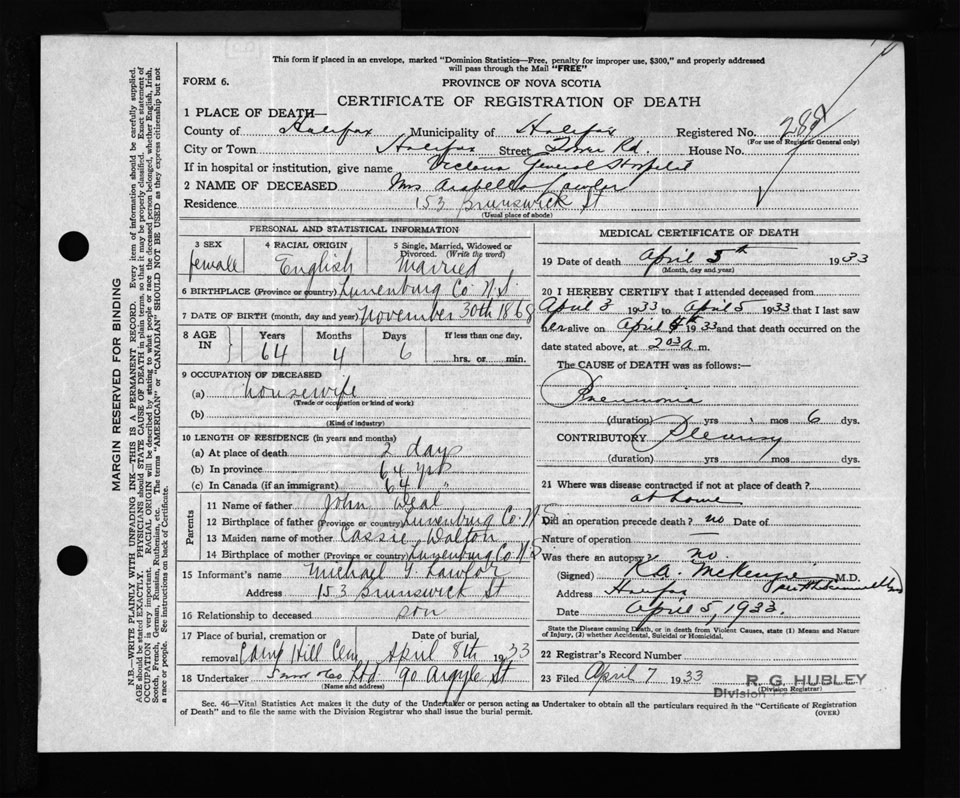 This form if placed in an envelope, marked "Dominion Statistics—Free, penalty for improper use, $300," and properly addressed
will pass through the Mail "FREE"
FORM 6.
PROVINCE OF NOVA SCOTIA
CERTIFICATE OF REGISTRATION OF DEATH
1 PLACE OF DEATH—
County of Halifax Municipality of Halifax Registered No. 282
(For use of Registrar General only)
City or Town Halifax Street Tower Rd. House No.
If in hospital or institution, give name Victoria General Hospital
2 NAME OF DECEASED Mrs Arabella Lawlor
Residence 153 Brunswick St
(Usual place of abode)
PERSONAL AND STATISTICAL INFORMATION
3 SEX female
4 RACIAL ORIGIN English
5 Single, Married, Widowed or
Divorced. (Write the word)
Married
6 BIRTHPLACE (Province or country) Lunenburg Co. N.S.
7 DATE OF BIRTH (month, day and year) November 30th 1868
8 AGE IN Years 64 Months 4 Days 6 If less than one day.
hrs. or min.
9 OCCUPATION OF DECEASED
(a) housewife
(Trade or occupation or kind of work)
(b)
(Kind of industry)
10 LENGTH OF RESIDENCE (in years and months)
(a) At place of death 2 days
(b) In province 64 yrs
(c) In Canada (if an immigrant) 64 "
Parents
11 Name of father John Deal
12 Birthplace of father (Province or country) Lunenburg Co. N.S
13 Maiden name of mother Cassie Walton
14 Birthplace of mother (Province or country) Lunenburg Co. N.S
15 Informant's name Michael J. Lawlor
Address 153 Brunswick St
16 Relationship to deceased son
17 Place of burial, cremation or Date of burial
removal Camp Hill Cem April 8th 1933
18 Undertaker Snow & Co Ltd. 90 Argyle St
(Name and address)
MEDICAL CERTIFICATE OF DEATH
19 Date of death April 5th 1933
(Month, day and year)
20 I HEREBY CERTIFY that I attended deceased from
April 3 1933 to April 5 1933 that I last saw
her alive on April 4th 1933 and that death occurred on
date stated above, at 2 03 a m.
The CAUSE of DEATH was as follows:
Pneumonia
(duration) yrs mos 6 dys.
CONTRIBUTORY Pleurisy
(duration) yrs mos dys.
21 Where was disease contracted if not at place of death?
at home
Did an operation precede death? no Date of
Nature of operation —
Was there an autopsy? no.
(Signed) K.A. McKenzie M.D.
Address Halifax
Date April 5, 1933.
State the Disease causing Death, or in death from Violent Causes, state (1) Means and Nature
of Injury, (2) whether Accidental, Suicidal or Homicidal.
22 Registrar's Record Number
23 Filed April 7 1933 R. G. HUBLEY
Division
(Division Registrar)
Sec. 46—Vital Statistics Act makes it the duty of the Undertaker or person acting as Undertaker to obtain all the particulars required in the "Certificate of Registration
of Death" and to file the same with the Division Registrar who shall issue the burial permit.
(OVER)
MARGIN RESERVED FOR BINDING
N.B.—WRITE PLAINLY WITH UNFADING INK—THIS IS A PERMANENT RECORD. Every item of information should be carefully supplied.
AGE should be stated EXACTLY. PHYSICIANS should STATE CAUSE OF DEATH in plain terms, so that it may be properly classified. Exact statement of
OCCUPATION is very important. RACIAL ORIGIN will be described by stating to what people or race the deceased person belonged, whether English, Irish,
Scotch, French, German, Russian, Ruthenian, etc. The terms "AMERICAN" or "CANADIAN" SHOULD NOT BE USED as they express citizenship but not
a race or people. See instructions on back of Certificate.